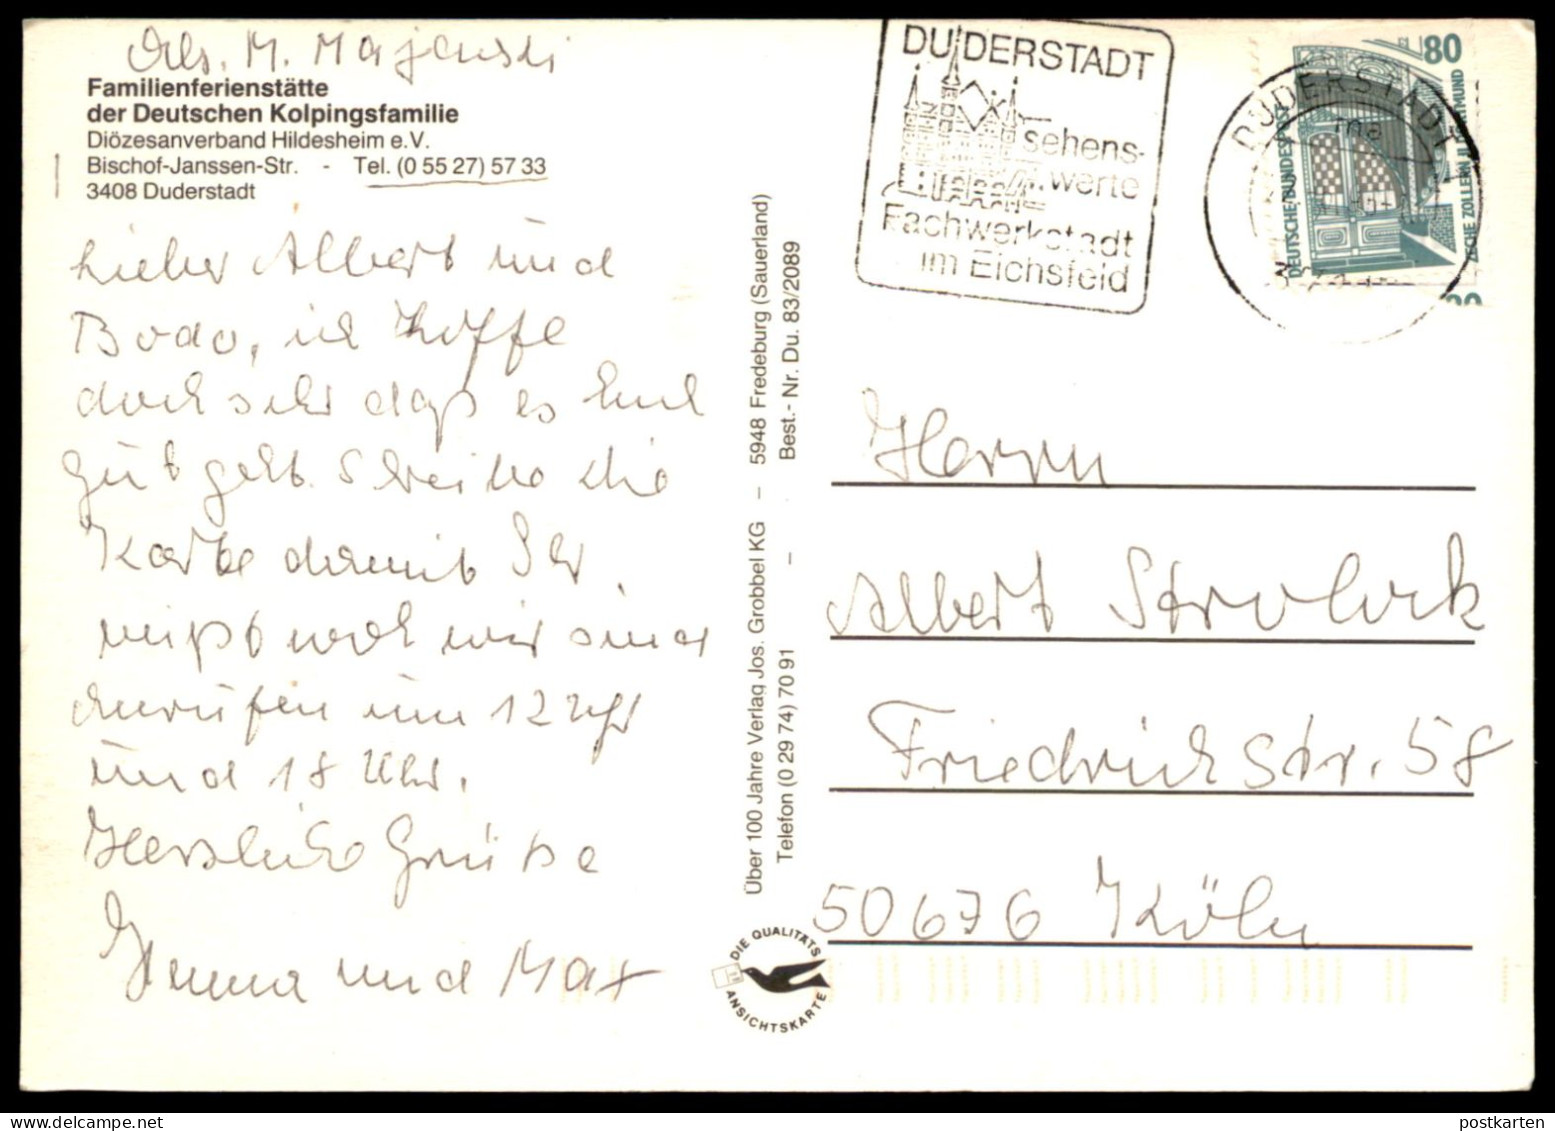 Abs. M. Majewski
Familienferienstätte
der Deutschen Kolpingsfamilie
Diözesanverband Hildesheim e.V.
Bischof-Janssen-Str. - Tel. (0 55 27) 57 33
3408 Duderstadt
Lieber Albert und
Bodo, ich hoffe
doch sehr daß es Euch
gut geht. Schreibe die
Karte damit Ihr
wißt wo wir sind
anrufen um 12 Uhr
und 18 Uhr.
Herzliche Grüße
Hanna und Max
Über 100 Jahre Verlag Jos. Grobbel KG – 5948 Fredeburg (Sauerland)
Telefon (0 29 74) 70 91 – Best.- Nr. Du. 83/2089
DIE QUALITÄTS
ANSICHTSKARTE
DUDERSTADT
sehens-
werte
Fachwerkstadt
im Eichsfeld
DUDERSTADT
80
DEUTSCHE BUNDESPOST
80
Herrn
Albert Strobuck
Friedrichstr. 58
50676 Köln
postkarten